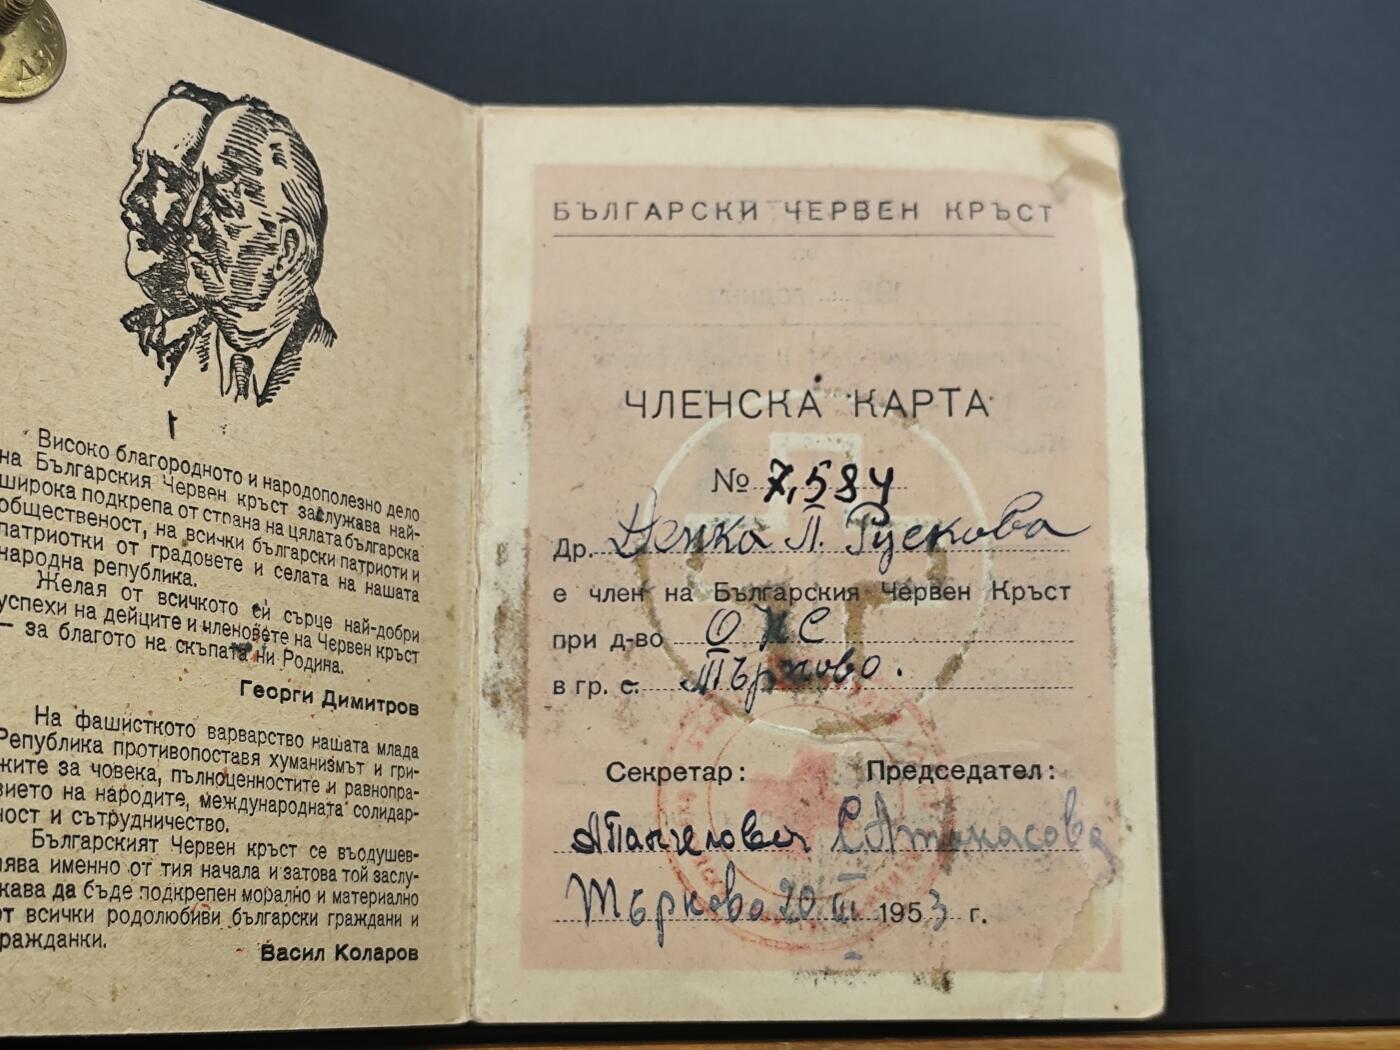 Високо благородното и народополезно дело
на Българския Червен кръст заслужава най-
широка подкрепа от страна на цялата българска
общественост, на всички български патриоти и
патриотки от градовете и селата на нашата
народна република.
Желая от всичкото си сърце най-добри
успехи на дейците и членовете на Червен кръст
— за благото на скъпата ни Родина.
Георги Димитров
На фашисткото варварство нашата млада
Република противопоставя хуманизмът и гри-
жите за човека, пълноценностите и равнопра-
вието на народите, международната солидар-
ност и сътрудничество.
Българският Червен кръст се въодушев-
лява именно от тия начала и затова той заслу-
жава да бъде подкрепен морално и материално
от всички родолюбиви български граждани и
гражданки.
Васил Коларов
БЪЛГАРСКИ ЧЕРВЕН КРЪСТ
ЧЛЕНСКА КАРТА
№ 7,584
Др. Денка П. Рускова
е член на Българския Червен Кръст
при д-во ОНС
в гр. с. Търново.
Секретар: Председател:
АПангелова САтанасова
Търново 20 III 1953 г.